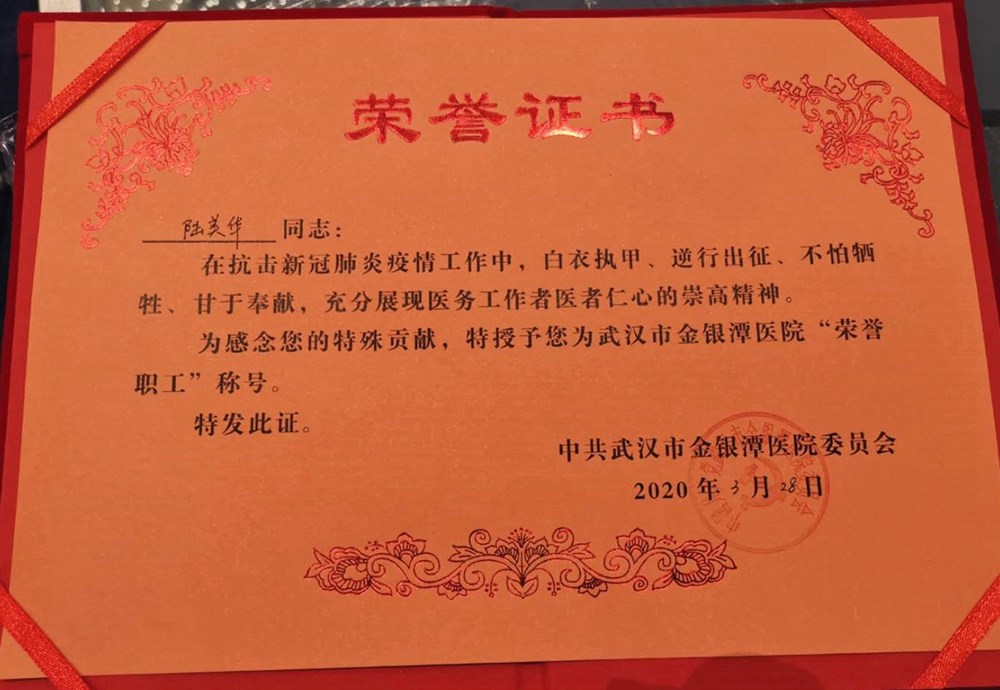 荣誉证书
陆英华 同志：
在抗击新冠肺炎疫情工作中，白衣执甲、逆行出征、不怕牺
牲、甘于奉献，充分展现医务工作者医者仁心的崇高精神。
为感念您的特殊贡献，特授予您为武汉市金银潭医院“荣誉
职工”称号。
特发此证。
中共武汉市金银潭医院委员会
2020 年 3 月 28 日